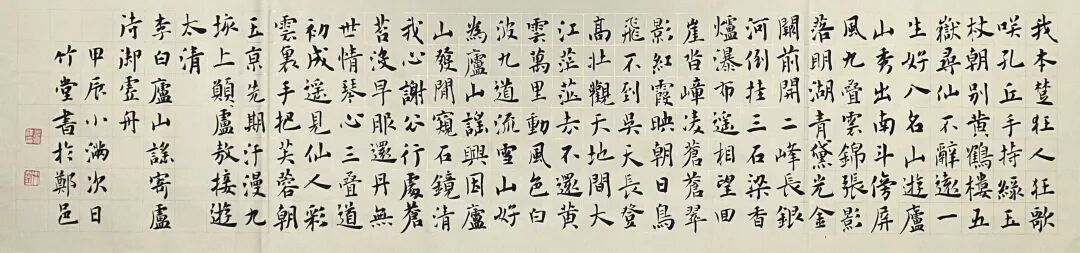 我本楚狂人狂歌
咲孔丘手持緑玉
杖朝别黄鶴樓五
嶽尋仙不辭遠一
生好入名山遊廬
山秀出南斗傍屏
風九疊雲錦張影
落明湖青黛光金
闕前開二峰長銀
河倒挂三石梁香
爐瀑布遥相望回
崖沓嶂凌蒼蒼翠
影紅霞映朝日鳥
飛不到吴天長登
高壯觀天地間大
江茫茫去不還黄
雲萬里動風色白
波九道流雪山好
為廬山謡興因廬
山發閒窺石鏡清
我心謝公行處蒼
苔沒早服還丹無
世情琴心三疊道
初成遥見仙人彩
雲裏手把芙蓉朝
玉京先期汗漫九
垓上願盧敖接遊
太清
李白廬山謡寄盧
侍御虚舟
甲辰小滿次日
竹堂書於鄭邑